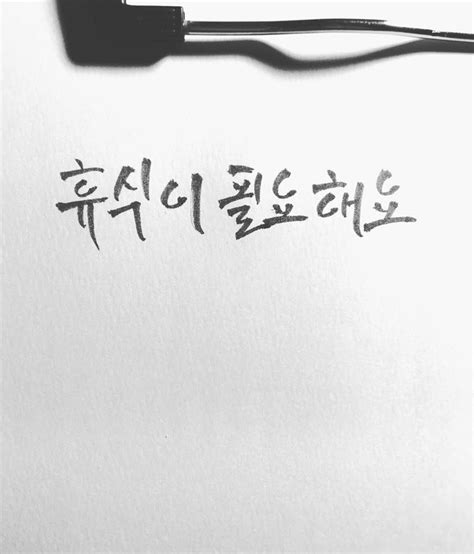 휴식이 필요해요